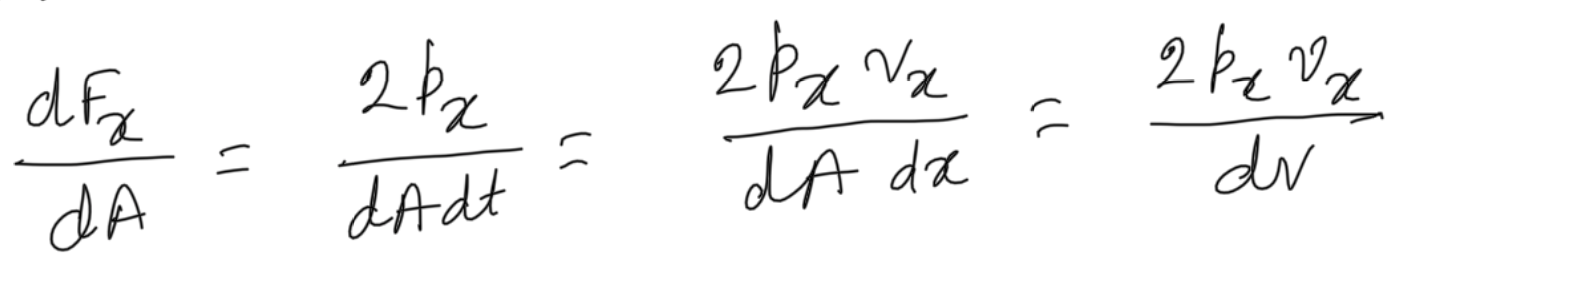 dFₓ/dA = 2pₓ/dAdt = 2pₓvₓ/dA dx = 2pₓvₓ/dV